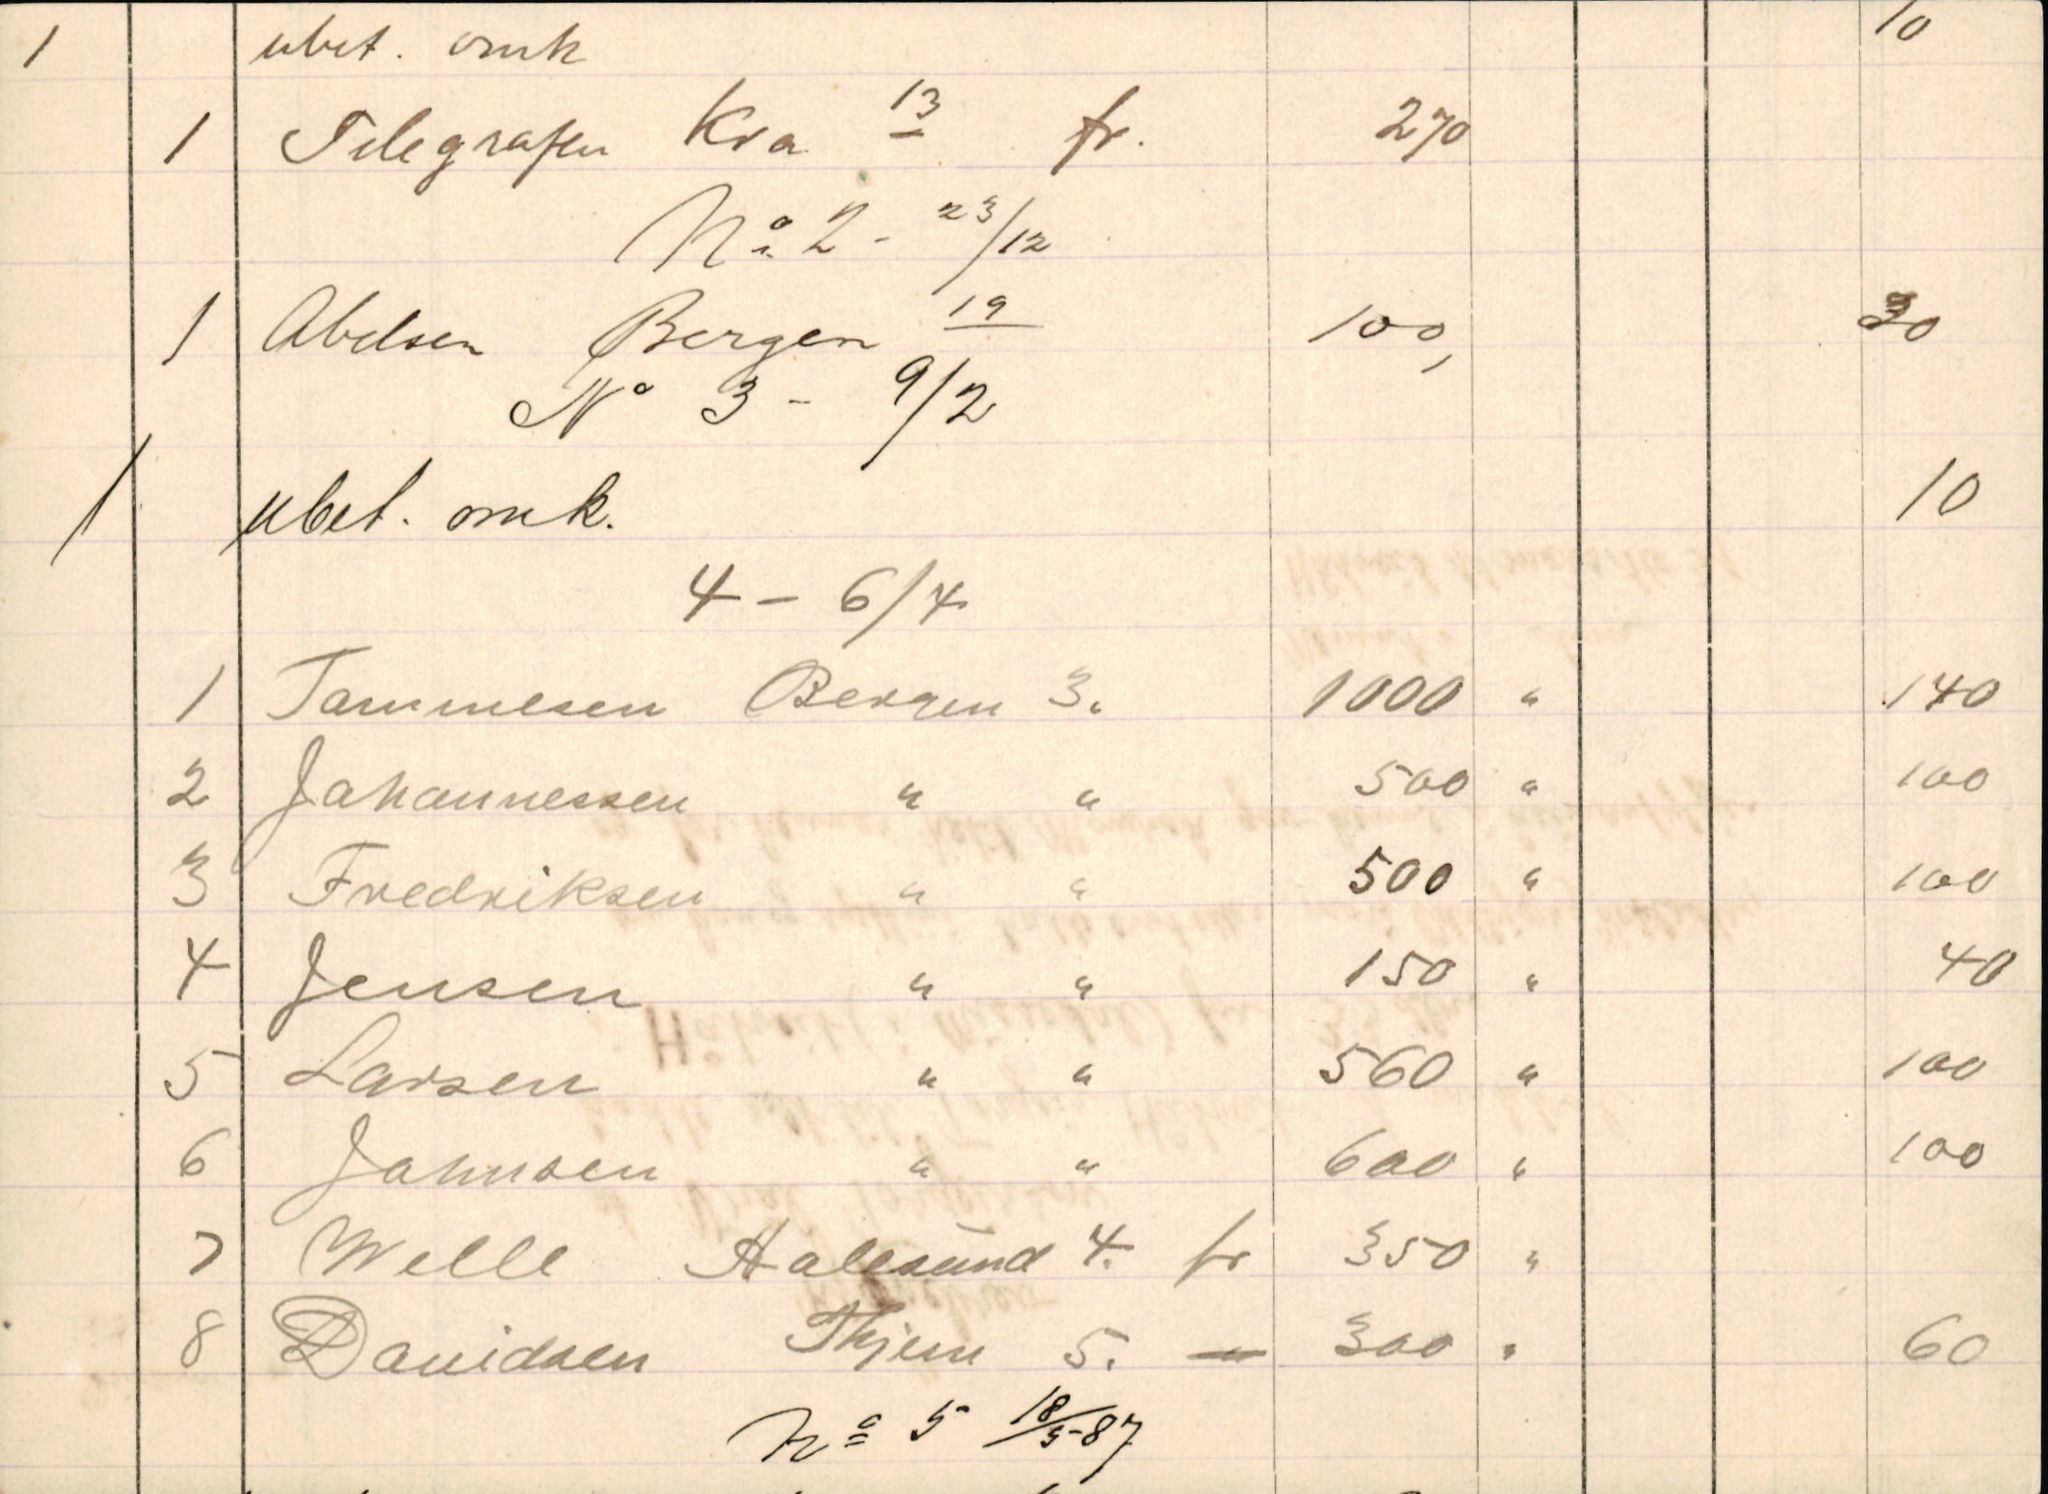 1 ubet. omk 10
1 Telegrafen Kra 13 fr. 270
No 2 - 23/12
1 Abelsen Bergen 19 100, 30
No 3 - 9/2
1 ubet. omk. 10
4 - 6/4
1 Tammesen Bergen 3. 1000 " 140
2 Johannessen " " 500 " 100
3 Fredriksen " " 500 " 100
4 Jensen " " 150 " 40
5 Larsen " " 560 " 100
6 Johnsen " " 600 " 100
7 Welle Aalesund 4. fr 350 "
8 Davidsen Thjem 5. — 300 " 60
No 5 18/5-87